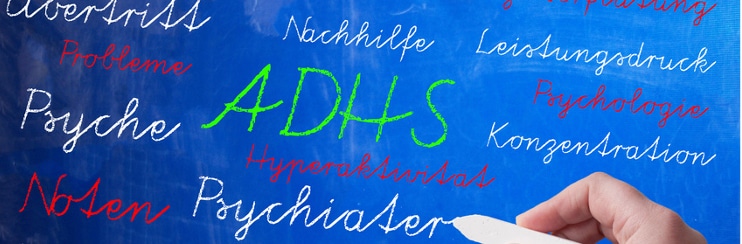 Übertritt
Nachhilfe
Leistungsdruck
Probleme
ADHS
Psychologie
Psyche
Konzentration
Hyperaktivität
Noten
Psychiater